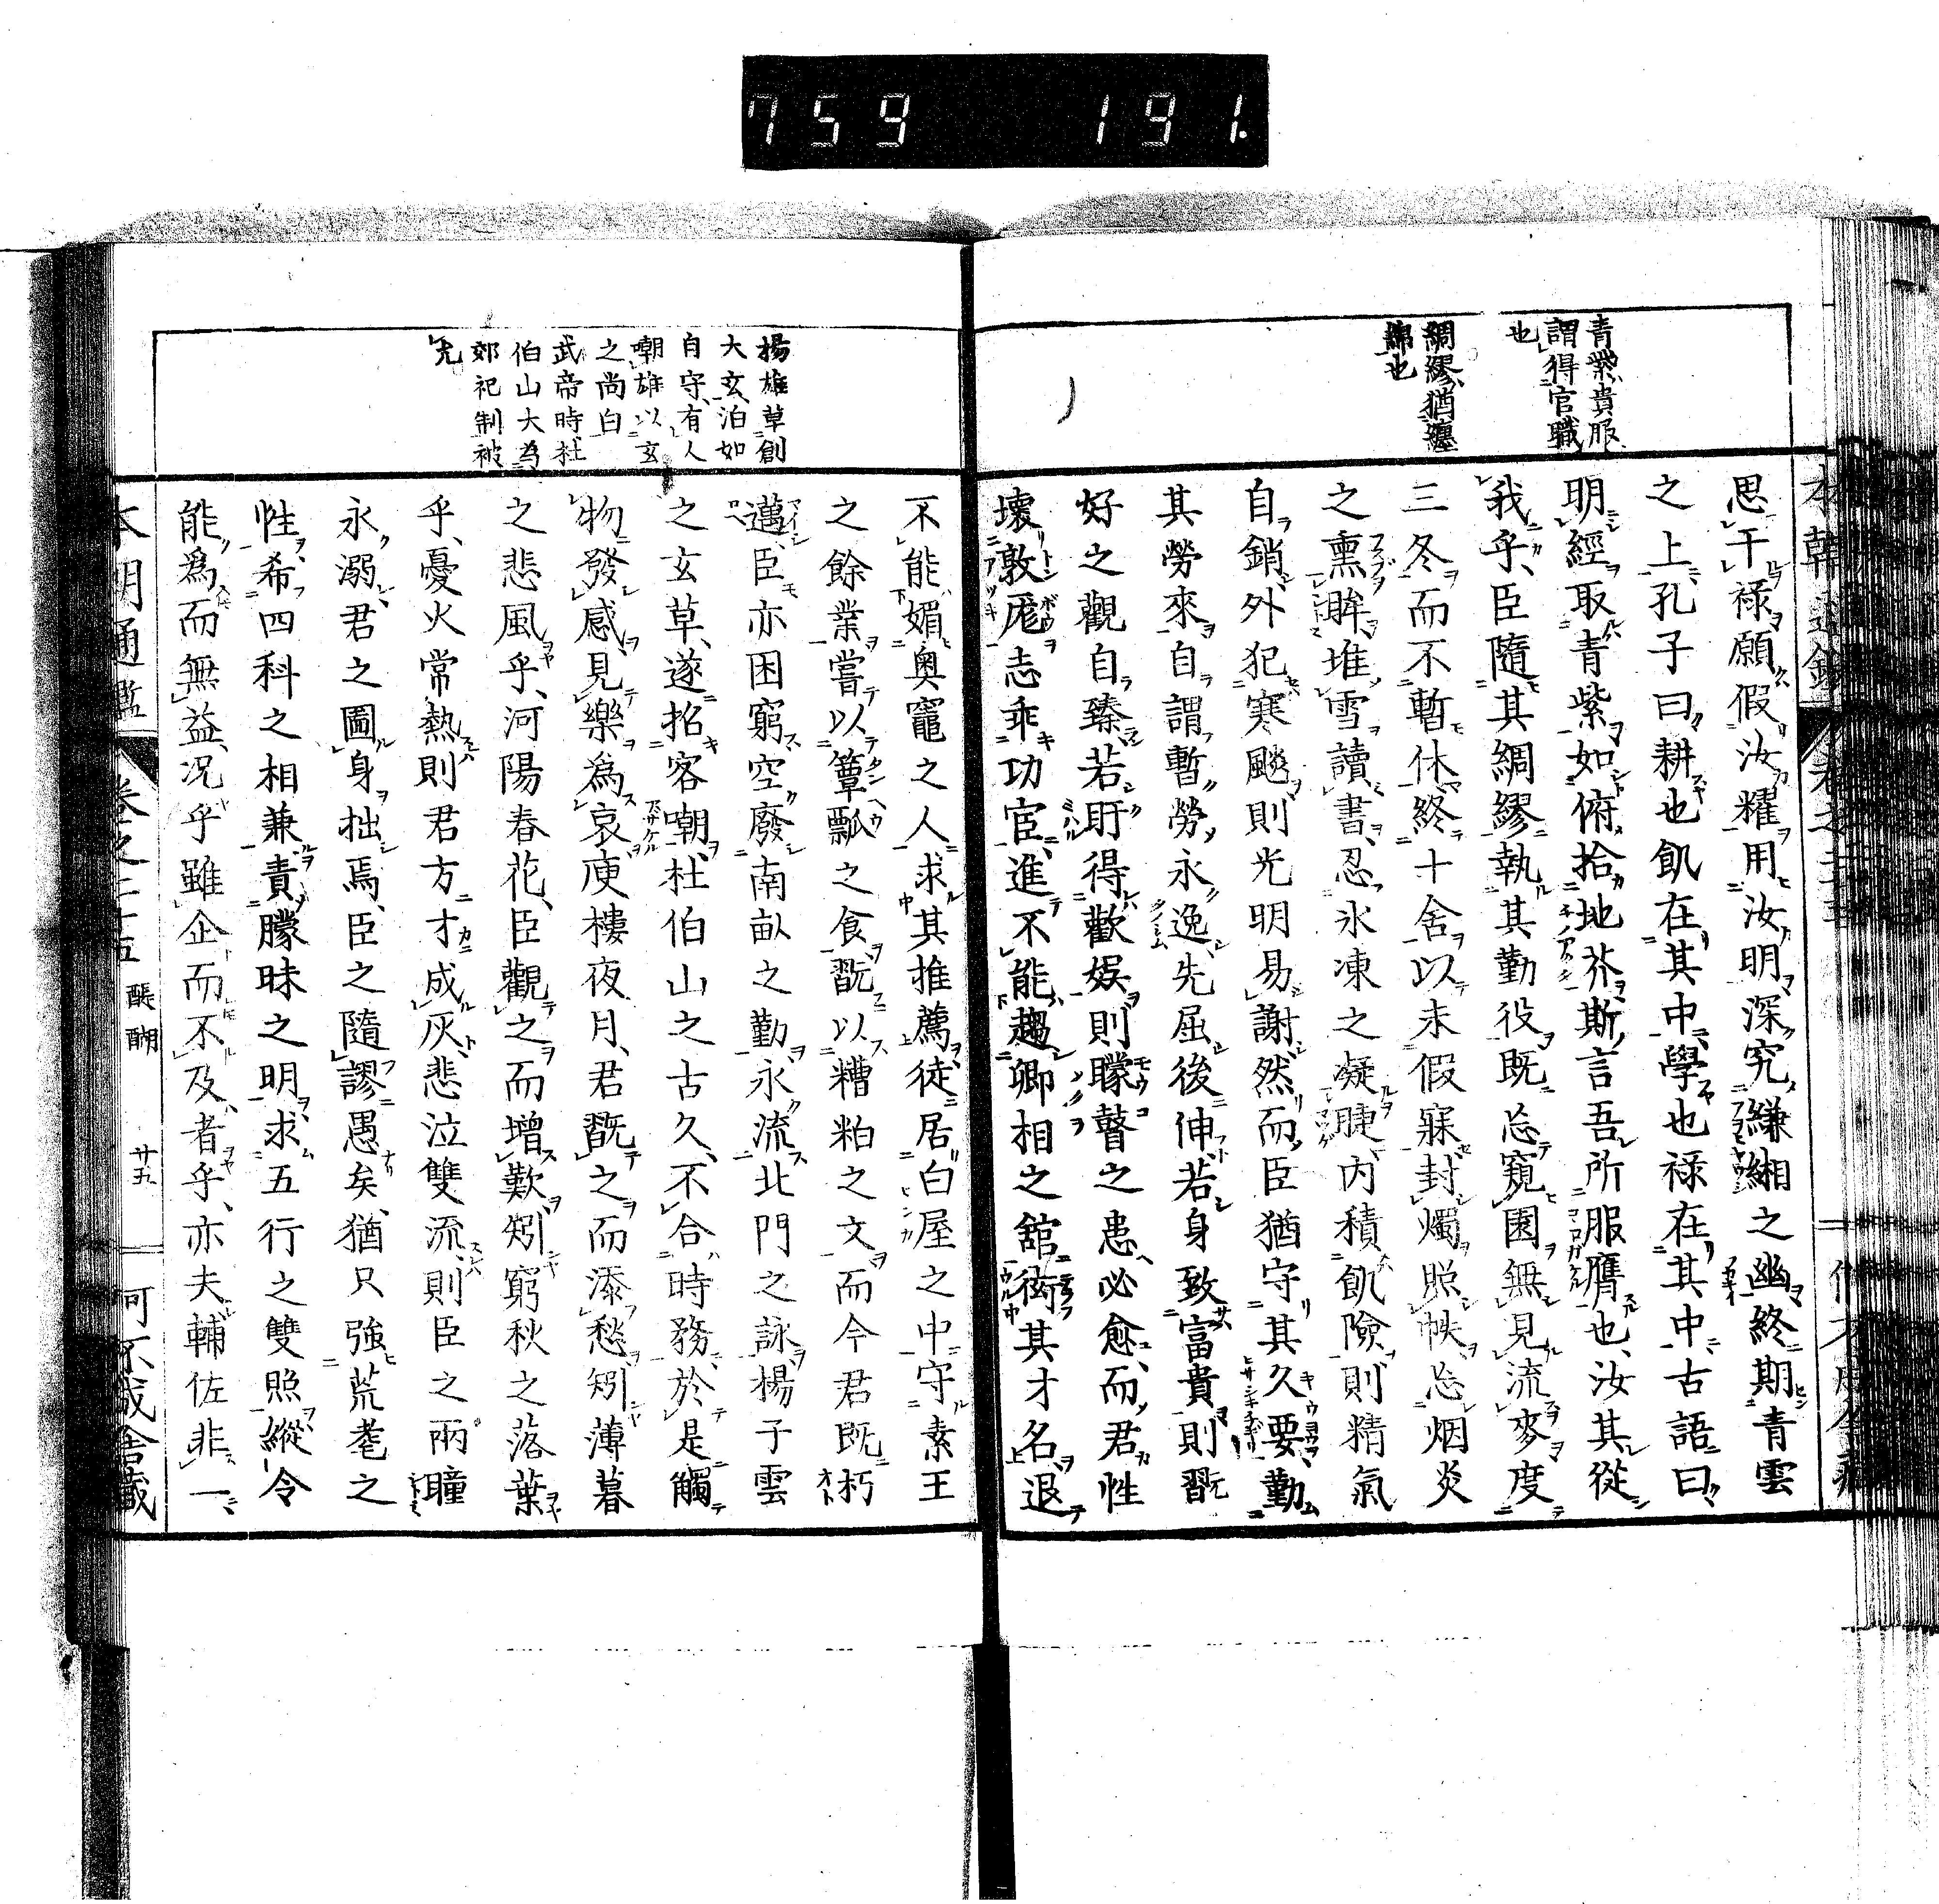 759 191.
青紫貴服
謂得官職
也
綢繆猶纏
綿也
思干祿願假汝糴用汝明深究縑緗之幽終期青雲
之上孔子曰耕也飢在其中學也祿在其中古語曰
明經取青紫如俯拾地芥斯言吾所服膺也汝其從
我乎臣隨其綢繆執其勤役既忘窺園無見流麥度
三冬而不暫休終十舍以未假寐封燭照帙忘烟炎
之熏眸堆雪讀書忍氷凍之凝睫内積飢險則精氣
自銷外犯寒颷則光明易謝然而臣猶守其久要勤
其勞來自謂暫勞永逸先屈後伸若身致富貴則翫
好之觀自臻若盱得歡娯則矇瞽之患必愈而君性
壞敦厖志乖功宦進不能趨卿相之舘衒其才名退
揚雄草創
大玄泊如
自守有人
嘲雄以玄
之尚白
武帝時杜
伯山大為
郊祀制被
不能媚奧竈之人求其推薦徒居白屋之中守素王
之餘業嘗以簞瓢之食翫以糟粕之文而今君既朽
邁臣亦困窮空廢南畝之勤永流北門之詠揚子雲
之玄草遂招客嘲杜伯山之古久不合時務於是觸
物發感見樂爲哀庾樓夜月君翫之而添愁矧薄暮
之悲風乎河陽春花臣觀之而增歎矧窮秋之落葉
乎憂火常熱則君方才成灰悲泣雙流則臣之兩瞳
永溺君之圖身拙焉臣之隨謬愚矣猶只強荒耄之
性希四科之相兼責朦昧之明求五行之雙照縱令
能爲而無益况乎雖企而不及者乎亦夫輔佐非一
本朝通鑑 卷之二十五 醍醐 廿五